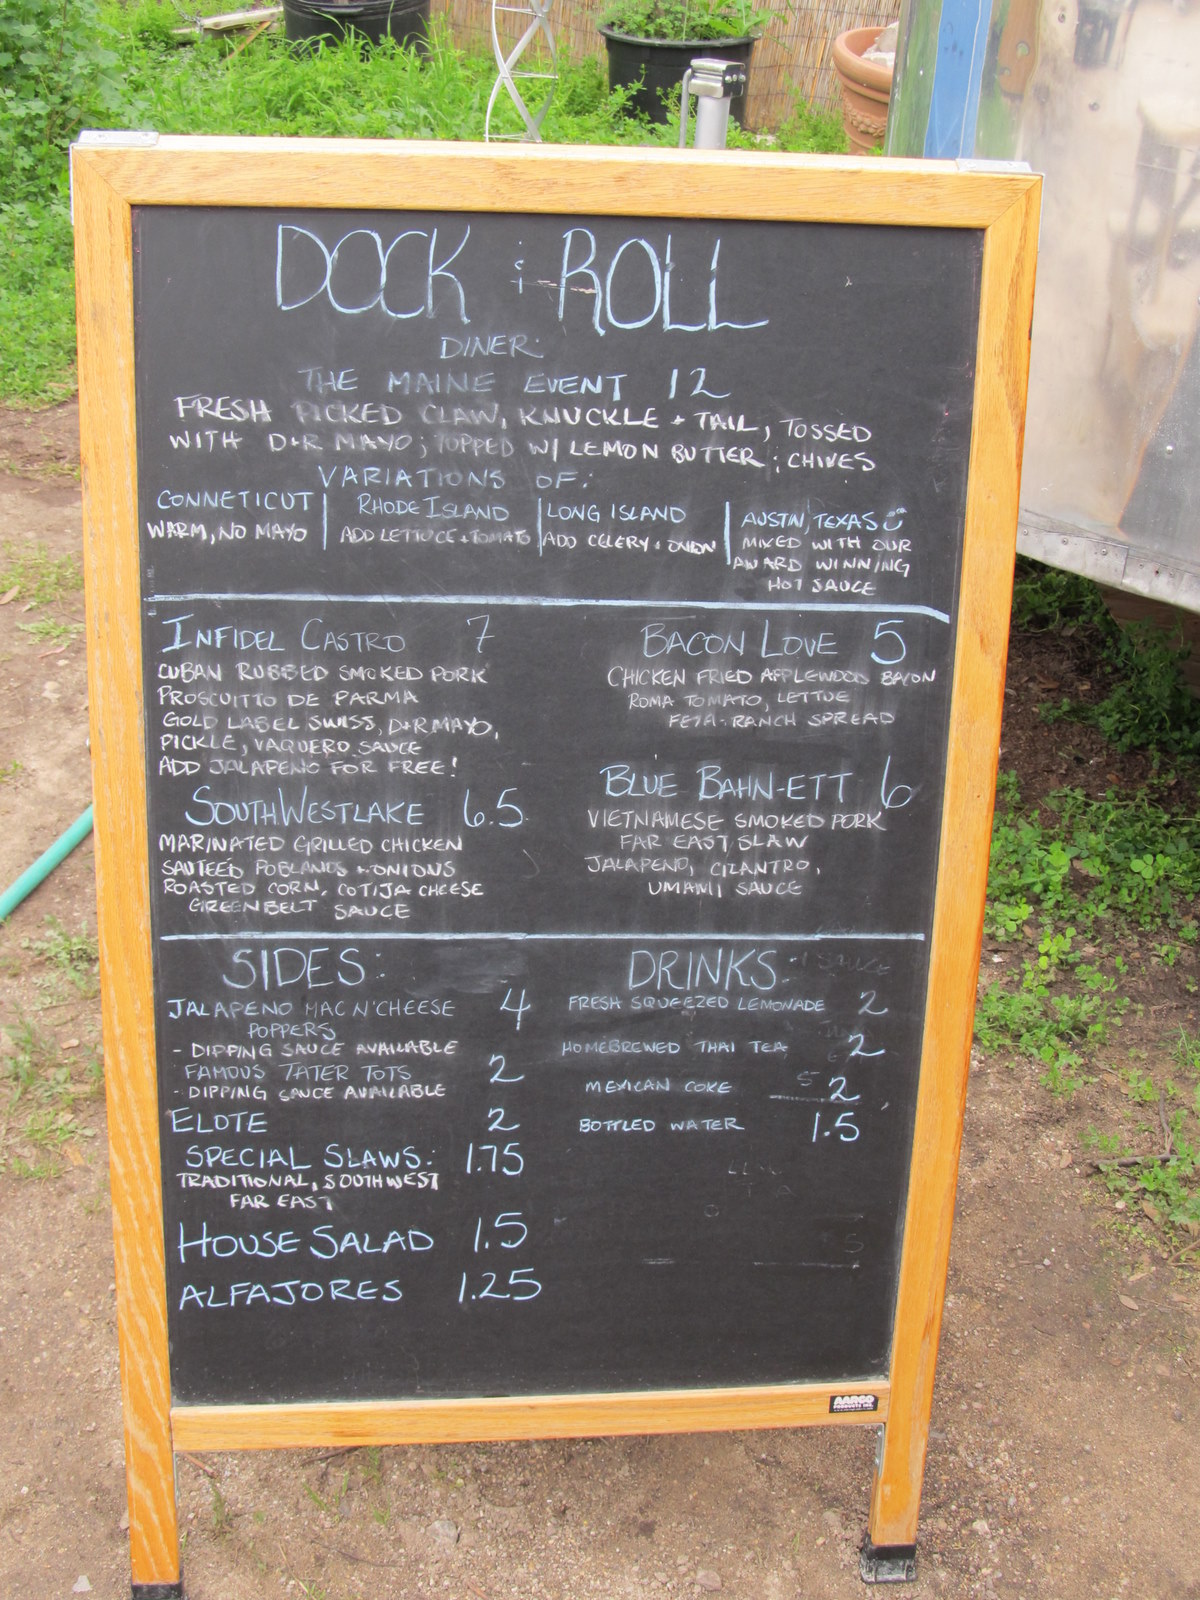 DOCK & ROLL
DINER:
THE MAINE EVENT 12
FRESH PICKED CLAW, KNUCKLE + TAIL, TOSSED
WITH D+R MAYO; TOPPED W/ LEMON BUTTER & CHIVES
VARIATIONS OF:
CONNETICUT
WARM, NO MAYO
RHODE ISLAND
ADD LETTUCE + TOMATO
LONG ISLAND
ADD CELERY + ONION
AUSTIN, TEXAS
MIXED WITH OUR
AWARD WINNING
HOT SAUCE
INFIDEL CASTRO 7
CUBAN RUBBED SMOKED PORK
PROSCUITTO DE PARMA
GOLD LABEL SWISS, D+R MAYO,
PICKLE, VAQUERO SAUCE
ADD JALAPENO FOR FREE!
SOUTHWESTLAKE 6.5
MARINATED GRILLED CHICKEN
SAUTEED POBLANOS + ONIONS
ROASTED CORN, COTIJA CHEESE
GREENBELT SAUCE
BACON LOVE 5
CHICKEN FRIED APPLEWOOD BACON
ROMA TOMATO, LETTUE
FETA-RANCH SPREAD
BLUE BAHN-ETT 6
VIETNAMESE SMOKED PORK
FAR EAST SLAW
JALAPENO, CILANTRO,
UMAMI SAUCE
SIDES:
JALAPENO MAC N' CHEESE 4
POPPERS
- DIPPING SAUCE AVAILABLE
FAMOUS TATER TOTS 2
- DIPPING SAUCE AVAILABLE
ELOTE 2
SPECIAL SLAWS: 1.75
TRADITIONAL, SOUTHWEST
FAR EAST
HOUSE SALAD 1.5
ALFAJORES 1.25
DRINKS:
FRESH SQUEEZED LEMONADE 2
HOMEBREWED THAI TEA 2
MEXICAN COKE 2
BOTTLED WATER 1.5
AARCO
PRODUCTS INC.